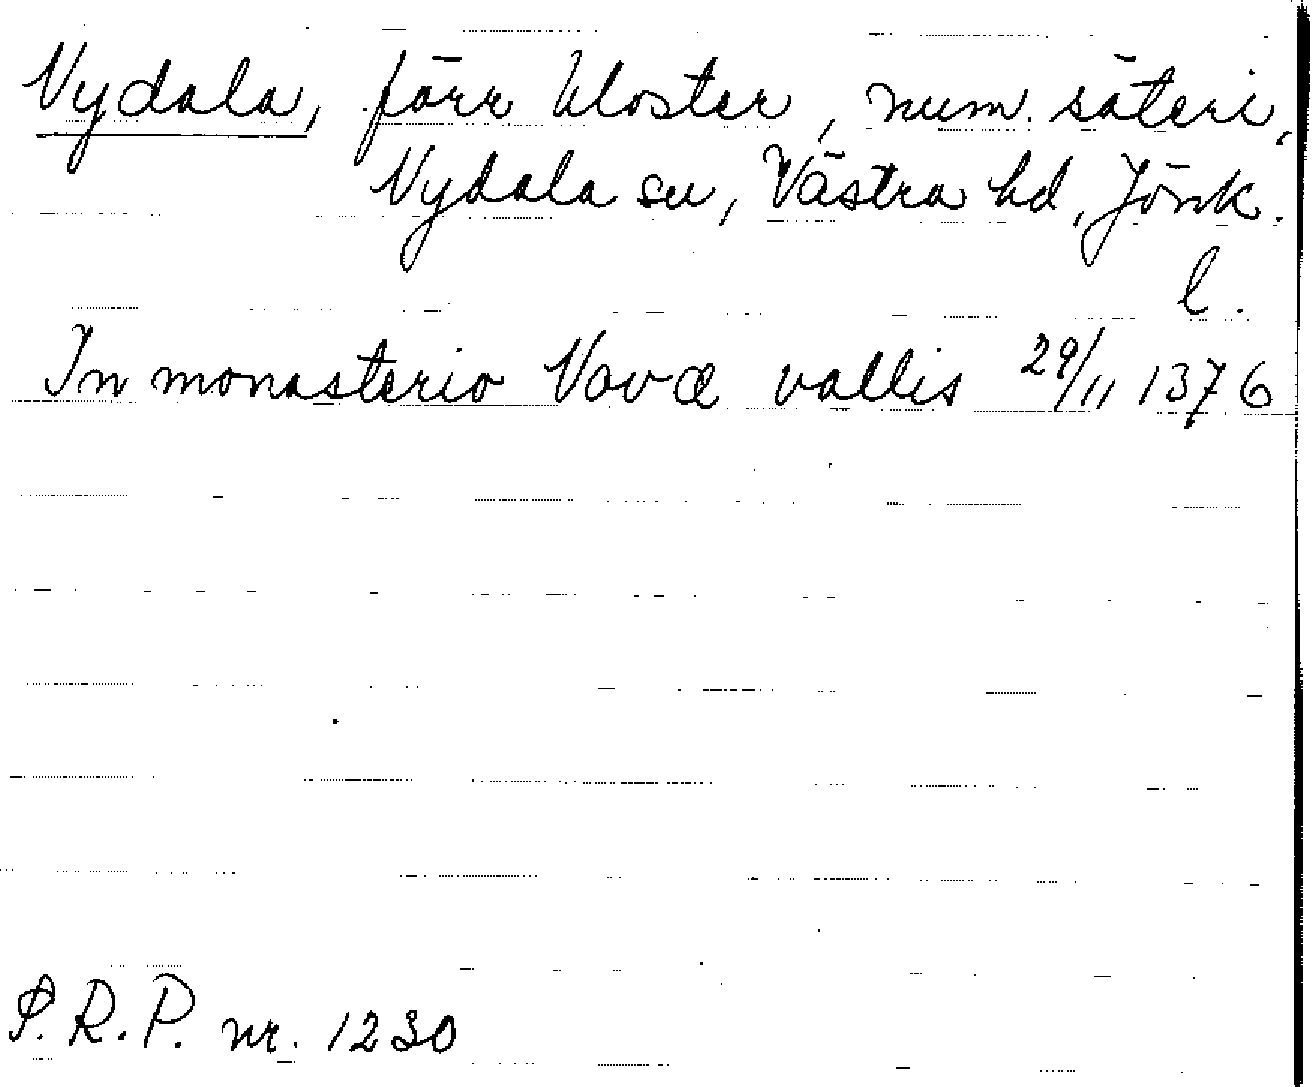 Nydala, förr kloster, num. säteri,
Nydala sn, Västra hd, Jönk.
l.
In monasterio Novæ vallis 29/11 1376
S.R.P. nr. 1230